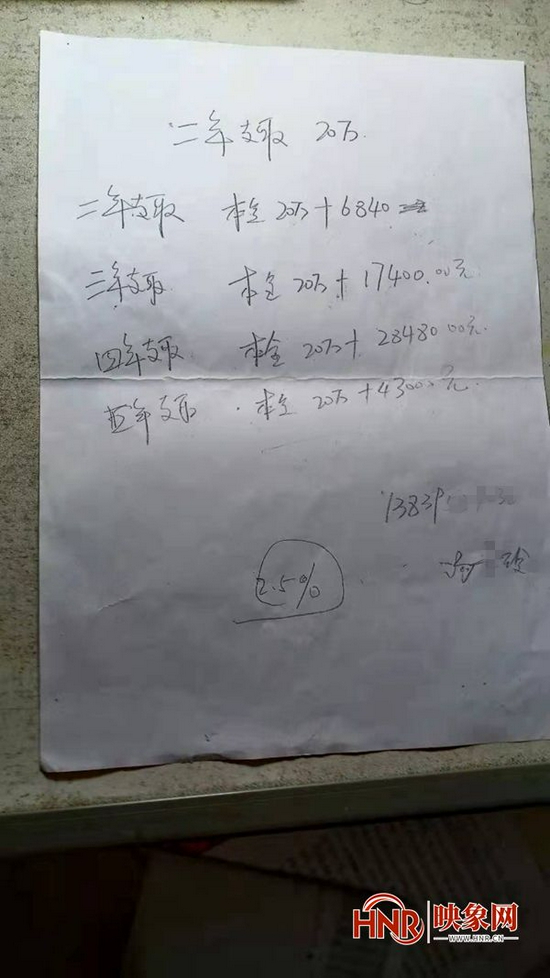 二年支取 20万.
二年支取 本金 20万 + 6840
三年支取 本金 20万 + 17400.00元
四年支取 本金 20万 + 28480 00元.
五年支取 . 本金 20万 + 43000 元.
13839
2.5%
HNR 映象网
WWW.HNR.CN